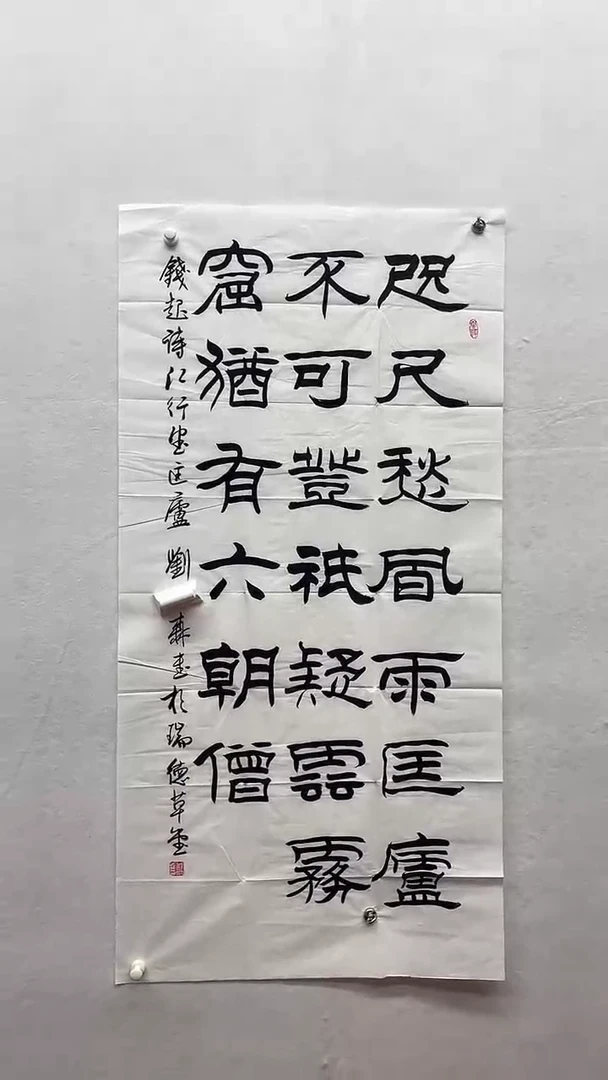 咫尺愁風雨匡廬
不可登祇疑雲霧
窟猶有六朝僧
錢起詩江行望匡廬 劉 書於瑞德草堂